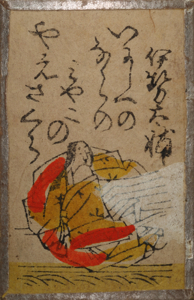 伊勢大輔
いにしへの
ならの
みやこの
やえさくら